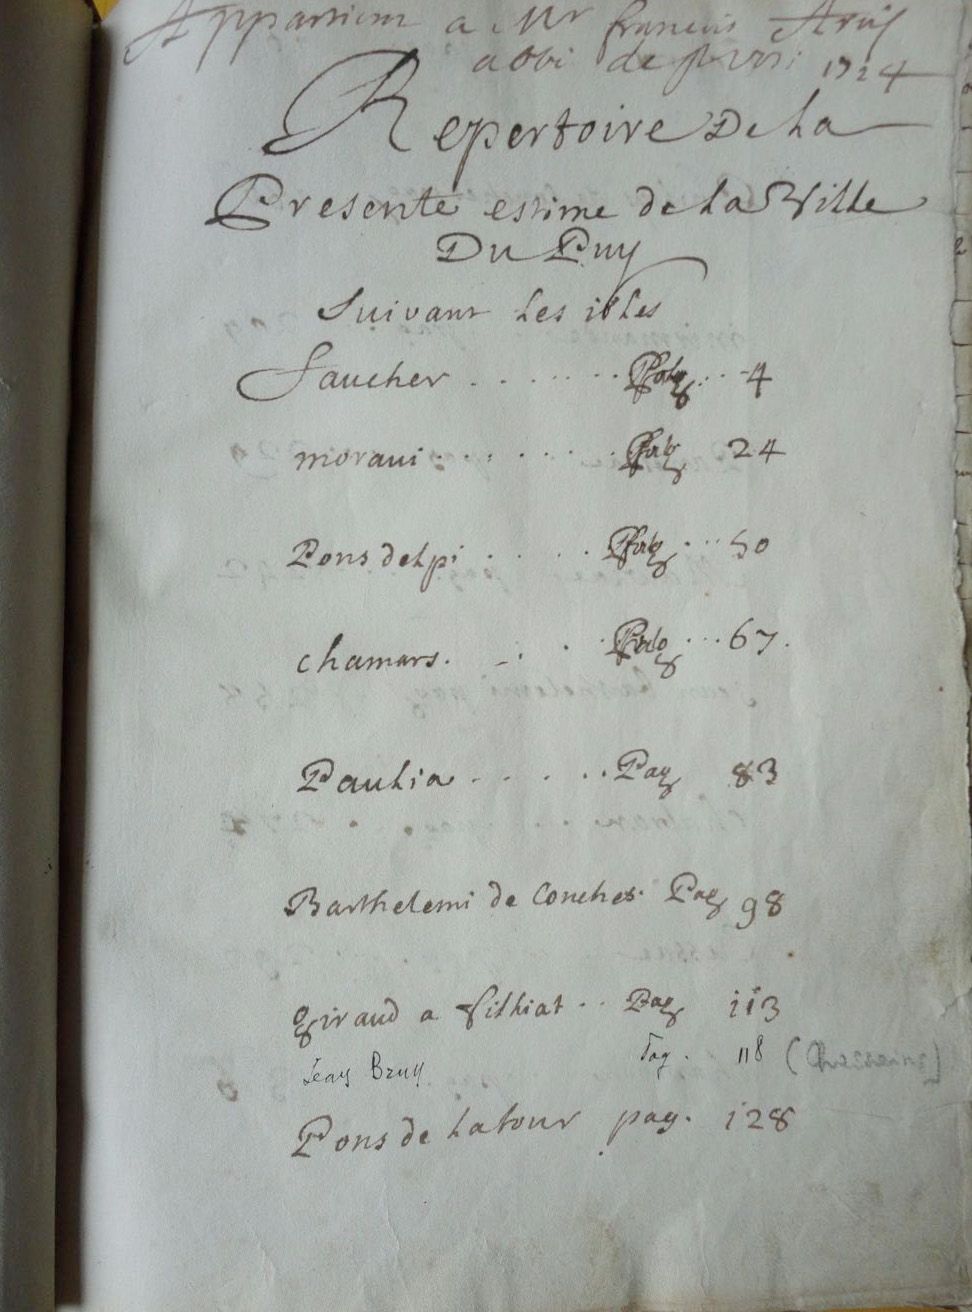 Appartient a Mr françois
de 1724
Repertoire De La
Presente estime de La Ville
Du Puy
Suivant Les isles
Saucher . . . . . . . Pag . . . 4
moravi . . . . . . . Pag 24
Pons delpi . . . . Pag . . . 50
Chamars . . . . Pag . . . 67.
Paulia . . . . . Pag 83
Barthelemi de Conches . Pag 98
giraud a filhiat . . Pag 113
Jean Brun Pag . 118
Pons de Latour pag . 128